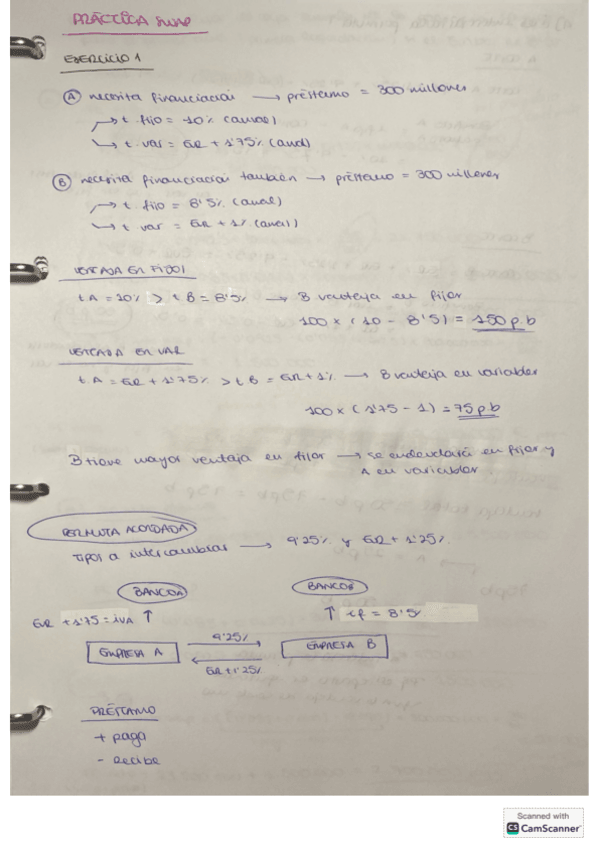 PRÁCTICA SWAP
EJERCICIO 1
(A) necesita financiación → préstamo = 300 millones
→ t. fijo = 10% (anual)
→ t. var = ER + 1'75% (anual)
(B) necesita financiación también → préstamo = 300 millones
→ t. fijo = 8'5% (anual)
→ t var = ER + 1% (anual)
VENTAJA EN FIJO
t A = 10% > t B = 8'5% → B ventaja en fijos
100 x (10 - 8'5) = 150 p.b
VENTAJA EN VAR
t. A = ER + 1'75% > t B = ER + 1% → B ventaja en variables
100 x (1'75 - 1) = 75 p.b
B tiene mayor ventaja en fijos → se endeudará en fijos y
A en variables
PERMUTA ACORDADA
TIPOS a intercambiar → 9'25% y ER + 1'25%.
BANCO A BANCO B
ER + 1'75 = iVA ↑ ↑ rf = 8'5%
EMPRESA A 9'25% EMPRESA B
ER+1'25%
PRÉSTAMO
+ paga
- Recibe
Scanned with
CS CamScanner